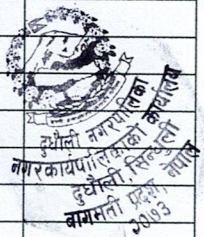 दुधौली नगरपालिका
नगरकार्यपालिकाको कार्यालय
दुधौली सिन्धुली
बागमती प्रदेश, नेपाल
२०७३